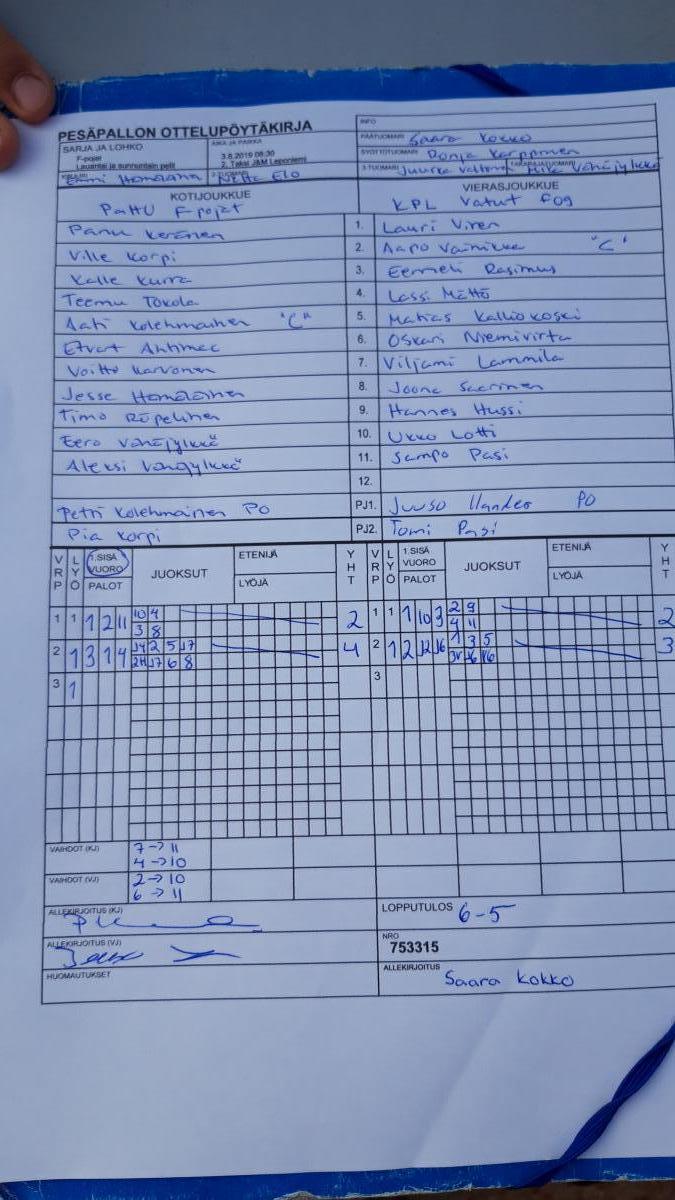 PESÄPALLON OTTELUPÖYTÄKIRJA
INFO
SARJA JA LOHKO
AIKA JA PAIKKA
PÄÄTUOMARI Saara Kokko
F-pojat
Lauantai ja sunnuntain pelit
3.8.2019 08:30
2. Taksi J&M Leponiemi
SYÖTTÖTUOMARI Ronja Karppinen
KIRJURI Emmi
2-TUOMARI Netta Elo
3-TUOMARI Juurka TAKARAJATUOMARI Mika Vähäjylkkä
KOTIJOUKKUE
VIERASJOUKKUE
PattU F-pojat
KPL Vatut F09
Panu Keränen 1. Lauri Viren
Ville Korpi 2. Aapo Vainikka "C"
Kalle Kurra 3. Eemeli Rasimus
Teemu Tokola 4. Lassi Mättö
Aati Kolehmainen "C" 5. Matias Kalliokoski
6. Oskari Niemivirta
Voitto Karvonen 7. Viljami Lammila
Jesse Hämäläinen 8. Joona Saarinen
Timo Röpelinen 9. Hannes Hussi
Eero Vähäjylkkä 10. Ukko Lotti
Aleksi Vähäjylkkä 11. Sampo Pasi
12.
Petri Kolehmainen PO PJ1. Juuso PO
Pia Korpi PJ2. Tomi Pasi
VRP LYÖ 1.SISÄ VUORO PALOT JUOKSUT ETENIJÄ LYÖJÄ YHT VRP LYÖ 1.SISÄ VUORO PALOT JUOKSUT ETENIJÄ LYÖJÄ YHT
1 1 1 2 11 10 4 2 1 1 1 10 3 2 9 2
3 8 4 11
2 1 3 1 4 2 5 17 4 2 1 2 12 16 1 3 5 3
17 6 8
3 1 3
VAIHDOT (KJ) 7 → 11
4 → 10
VAIHDOT (VJ) 2 → 10
6 → 11
ALLEKIRJOITUS (KJ)
LOPPUTULOS 6-5
ALLEKIRJOITUS (VJ)
NRO
753315
HUOMAUTUKSET
ALLEKIRJOITUS Saara Kokko